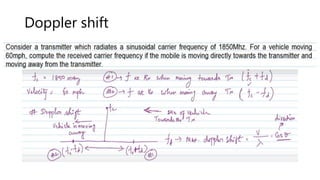 Doppler shift
Consider a transmitter which radiates a sinusoidal carrier frequency of 1850Mhz. For a vehicle moving
60mph, compute the received carrier frequency if the mobile is moving directly towards the transmitter and
moving away from the transmitter.
fc = 1850 MHz
→ f at Rx when moving towards Tx (fc + fd)
Velocity = 60 mph
→ f at Rx when moving away Tx (fc - fd)
# Doppler shift
fc
Dirn of vehicle
Towards the Tx
direction
Vehicle is moving
away
fd → Max. doppler shift = V/λ · Cos θ
(fc - fd)
(fc + fd)